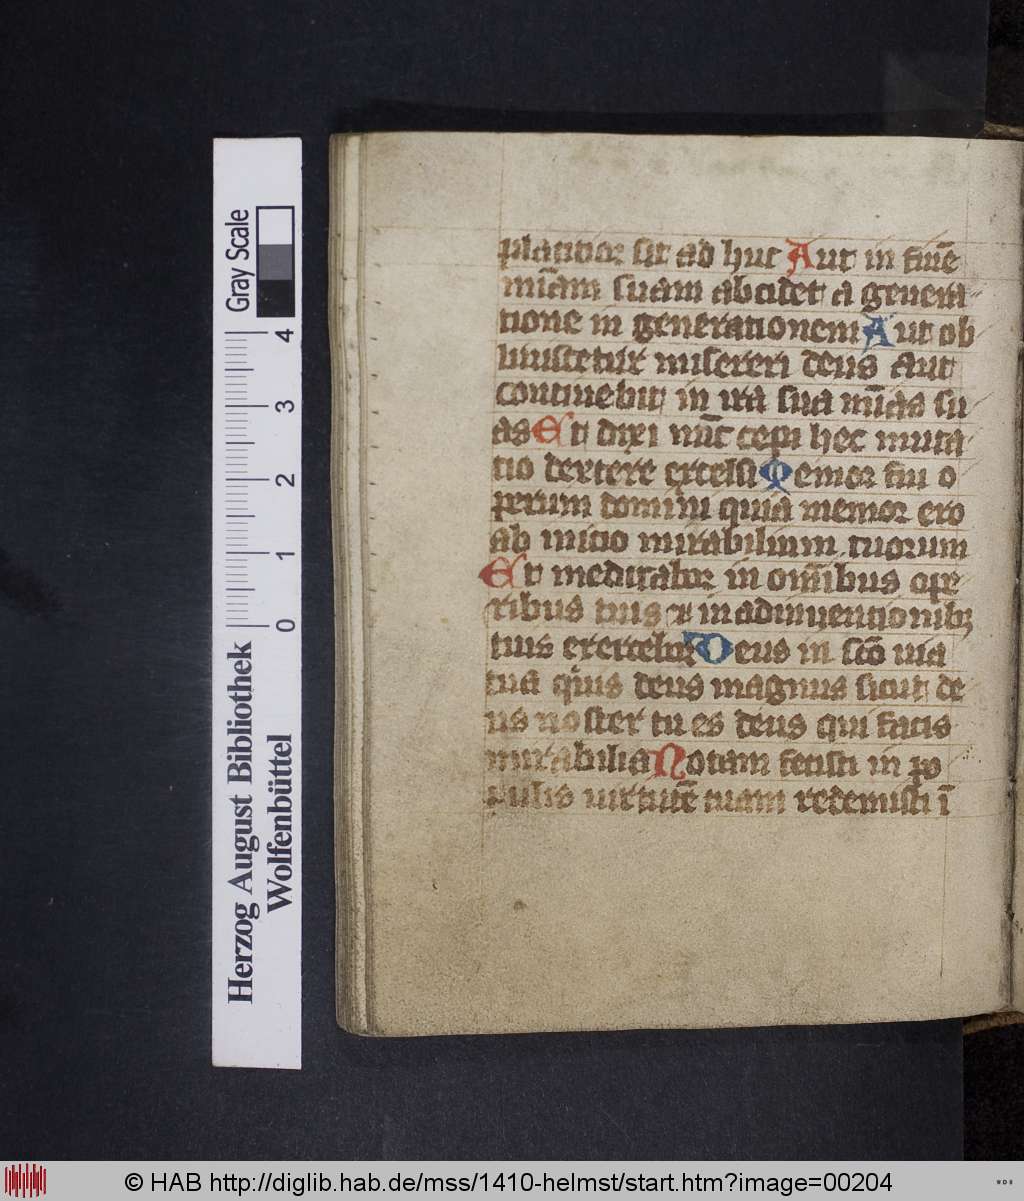 placatior sit ad huc Aut in finē
mīam suam abcidet a genera
tione in generationem Aut ob
liuiscetur misereri deus aut
continebit in ira sua mīas su
as Et dixi nūc cepi hec muta
tio dextere excelsi Memor fui o
perum domini quia memor ero
ab inicio mirabilium tuorum
Et meditabor in omībus ope
ribus tuis ⁊ in adinuentionibꝫ
tuis exercebor Deus in scō uia
tua quis deus magnus sicut de
us noster tu es deus qui facis
mirabilia Notam fecisti in po
pulis uirtutē tuam redemisti ī
Gray Scale
4
3
2
1
0
Herzog August Bibliothek
Wolfenbüttel
© HAB http://diglib.hab.de/mss/1410-helmst/start.htm?image=00204